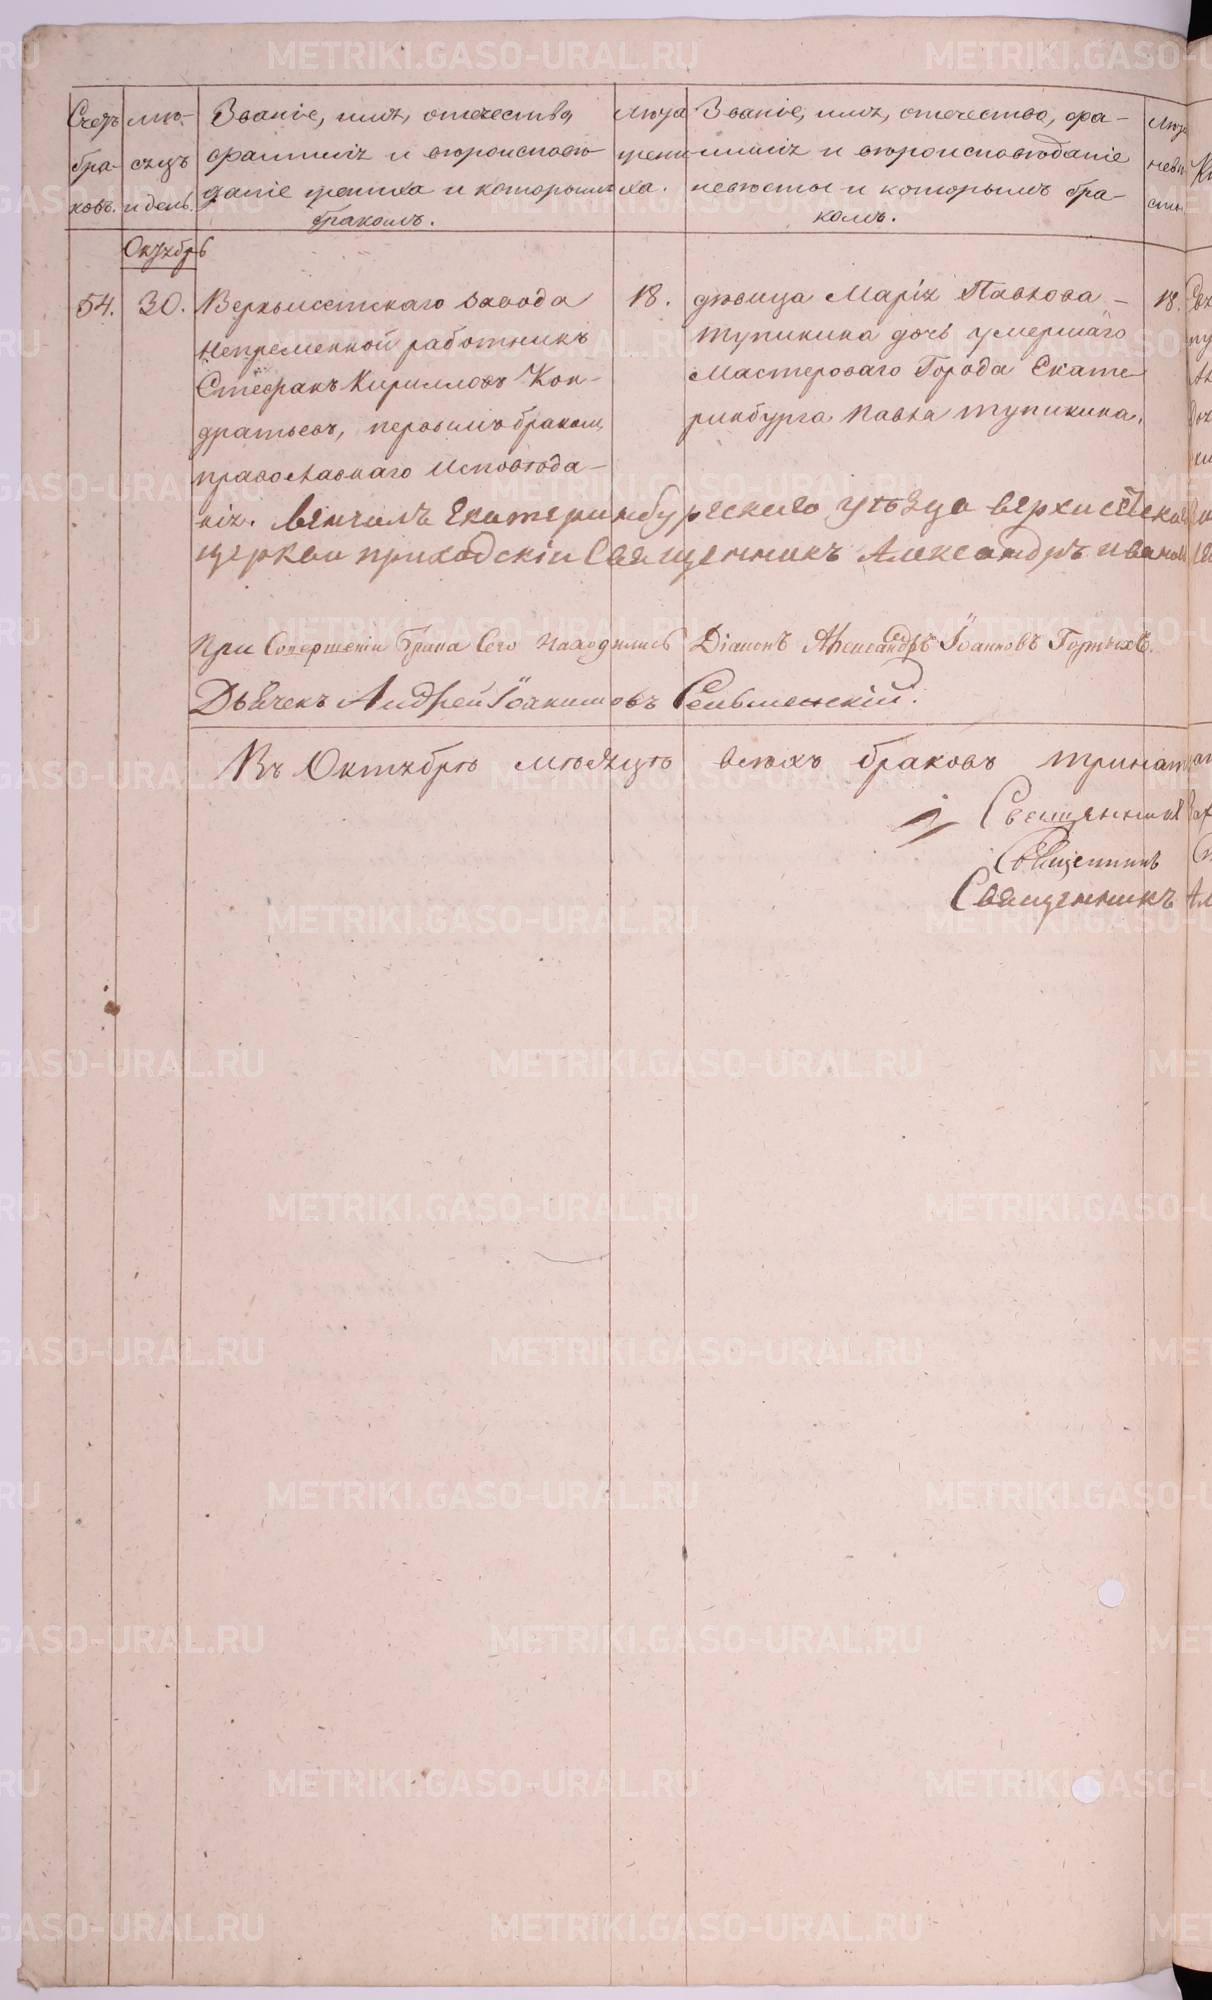 Счетъ браковъ.
Мѣсяцъ и день.
Званіе, имя, отечество,
фамилія и вѣроисповѣ-
даніе жениха и которымъ
бракомъ.
Лѣта жениха.
Званіе, имя, отечество, фа-
милія и вѣроисповѣданіе
невѣсты и которымъ бра-
комъ.
Лѣта
невѣ
сты
Октябрь
54.
30.
Верхъисетскаго завода
непременной работникъ
Стефанъ Кирилловъ Кон-
дратьевъ, первымъ бракомъ,
православнаго исповѣда-
нія.
18.
дѣвица Марія Павлова -
Тупикина дочь умершаго
Мастероваго Города Екате
ринбурга Павла Тупикина.
18.
Венчалъ Екатеринбургскаго уѣзда Верхисетской
церкви приходскій Священникъ Александръ Иванов
При Совершеніи Брака Сего Находились Діаконъ Александръ Іоанновъ Горныхъ.
Дьячекъ Андрей Іоакимовъ Сельменскій.
Въ Октябрѣ мѣсяцѣ всѣхъ браковъ тринат
Священникъ
Священникъ
Священникъ
METRIKI.GASO-URAL.RU